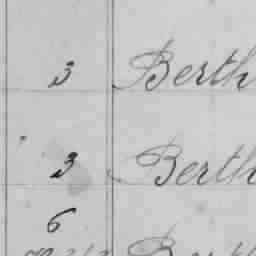 3 Berth
3 Berth
6